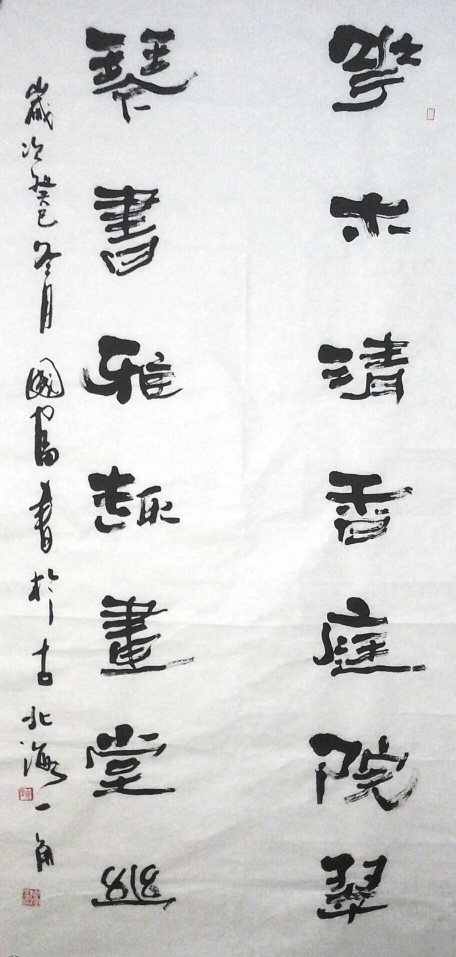 華木清香庭院翠
琴書雅趣畫堂幽
歲次癸巳冬月國富書於古北海一角